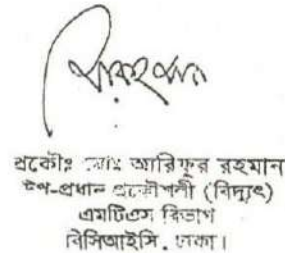 প্রকৌঃ মোঃ আরিফুর রহমান
উপ-প্রধান প্রকৌশলী (বিদ্যুৎ)
এমটিএস বিভাগ
বিসিআইসি, ঢাকা।